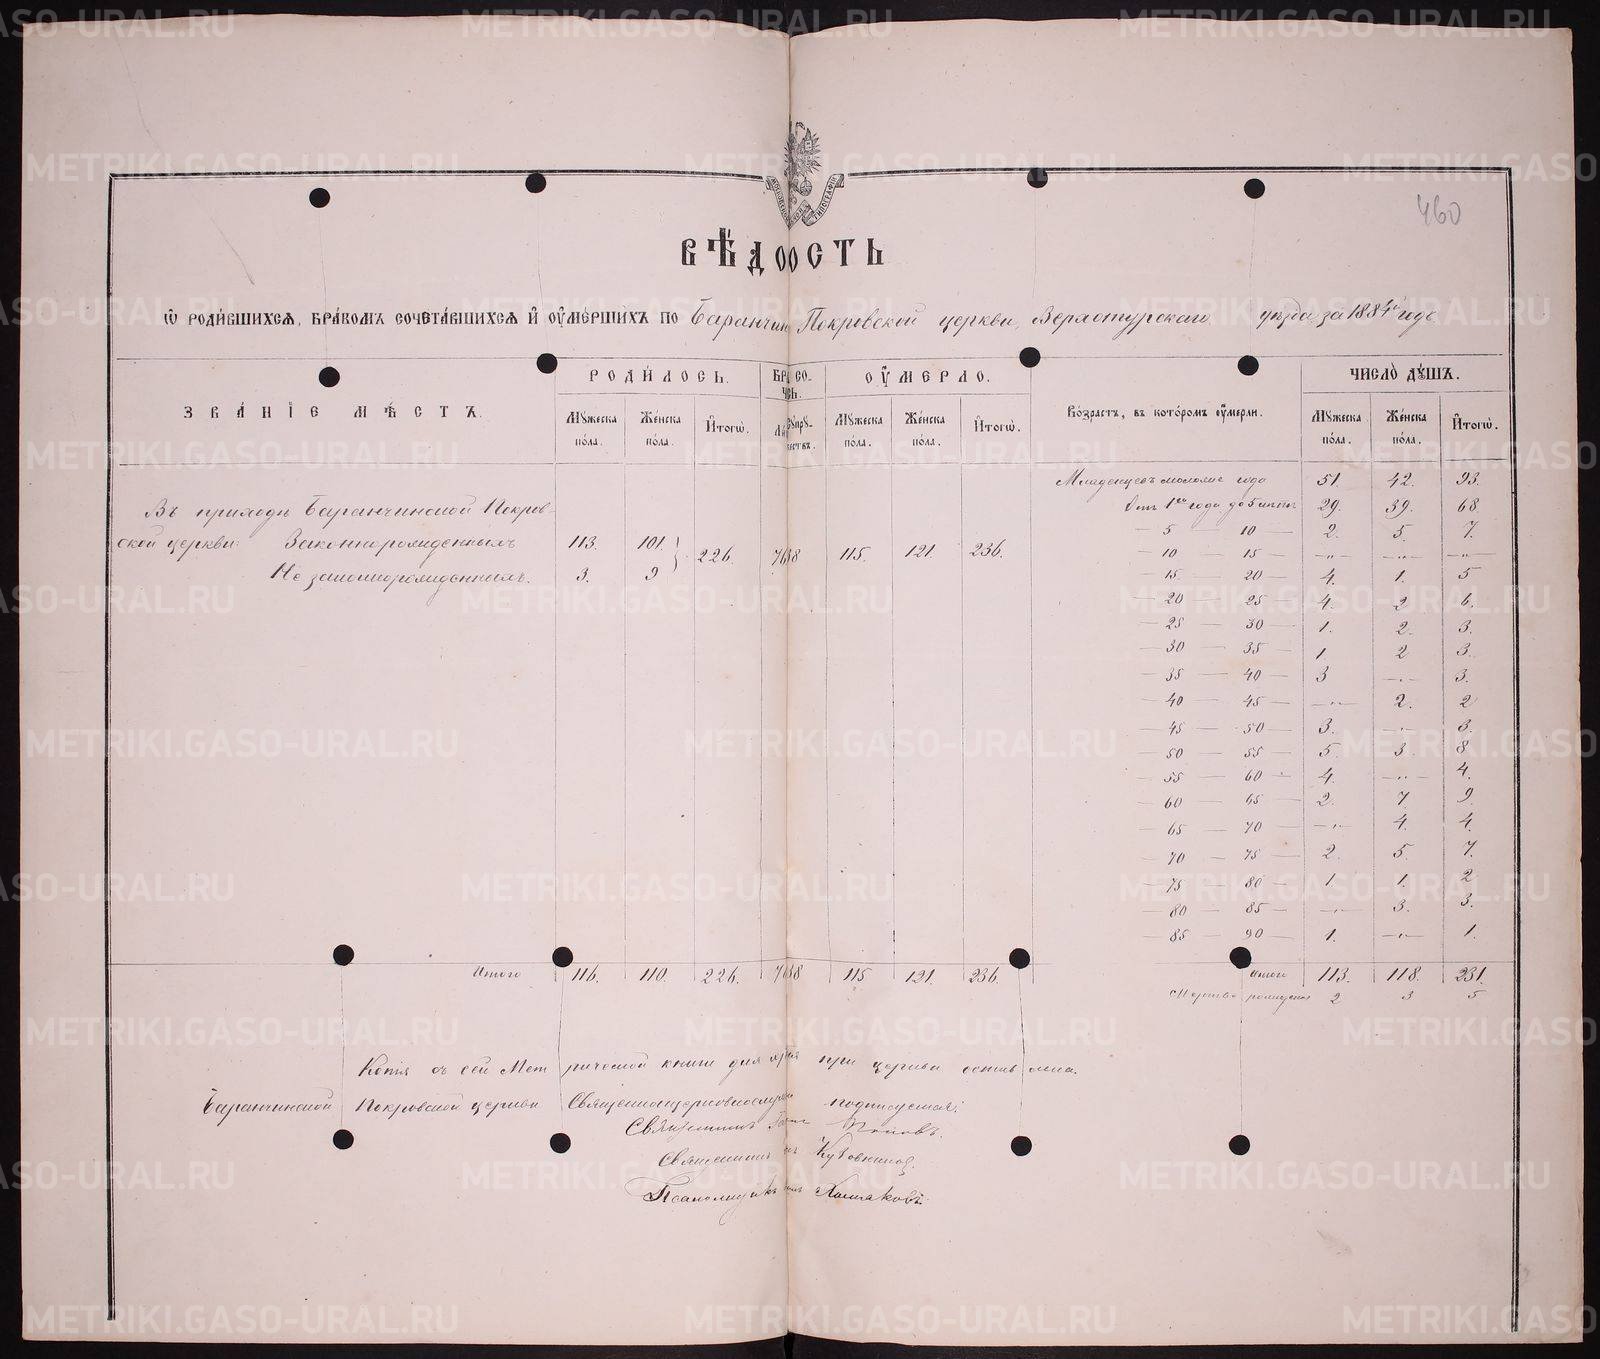 460
ВѢДО ОСТЬ
Ѡ РОДИВШИХСЯ, БРАКОМЪ СОЧЕТАВШИХСЯ И ОУМЕРШИХЪ ПО Баранчин Покровской церкви, Верхотурскаго уѣзда за 1884й годъ
ЗВАНІЕ МѢСТЪ. РОДИЛОСЬ. ОУМЕРЛО. Возрастъ, въ которомъ оумерли. ЧИСЛО ДУШЪ.
Мужеска пола. Женска пола. Итогѡ. Мужеска пола. Женска пола. Итогѡ. Мужеска пола. Женска пола. Итогѡ.
Младенцевъ моложе года 51. 42. 93.
Отъ 1го года до 5 лѣтъ 29. 39. 68.
— 5 — 10 — 2. 5. 7.
— 10 — 15 — —„— —„— —„—
— 15 — 20 — 4. 1. 5
— 20 — 25 — 4. 2 6.
— 25 — 30 — 1. 2. 3.
— 30 — 35 — 1 2 3.
— 35 — 40 — 3 —„— 3.
— 40 — 45 — —„— 2. 2
— 45 — 50 — 3. —„— 3.
— 50 — 55 — 5 3 8
— 55 — 60 — 4. —„— 4.
— 60 — 65 — 2. 7. 9.
— 65 — 70 — —„— 4. 4.
— 70 — 75 — 2. 5. 7.
— 75 — 80 — 1. 1. 2
— 80 — 85 — —„— 3. 3.
— 85 — 90 — 1. —„— 1.
Въ приходѣ Баранчинской Покров-
ской церкви: Законнорожденныхъ 113. 101. } 226. 115. 121. 236.
Незаконнорожденныхъ. 3. 9
Итого 116. 110. 226. 115 121. 236. Итого 113. 118. 231.
Мертворожденн 2 3 5
Копія съ сей Метрической книги для при церкви оставлена.
Баранчинской Покровской церкви Священноцерковнослужи подписуемся:
Священникъ Поповъ.
Священникъ
Псаломщикъ
METRIKI.GASO-URAL.RU